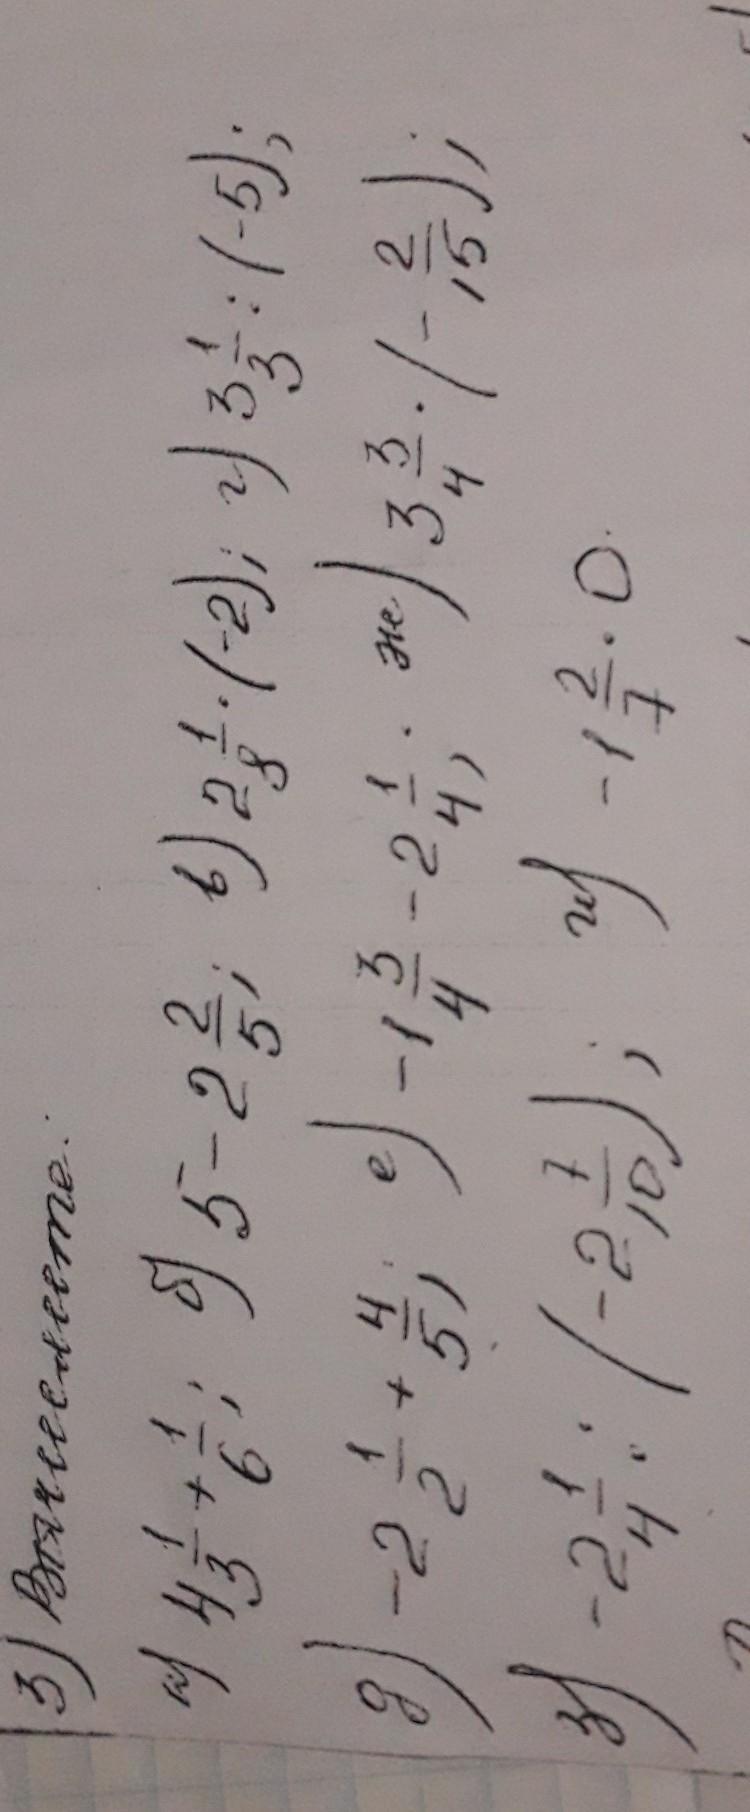 3) Вычислите:
а) 4 1/3 + 1/6; б) 5 - 2 2/5; в) 2 1/8 · (-2); г) 3 1/3 : (-5);
д) -2 1/2 + 4/5; е) -1 3/4 - 2 1/4; ж) 3 3/4 · (- 2/15);
з) -2 1/4 : (-2 7/10); и) -1 2/7 · 0.